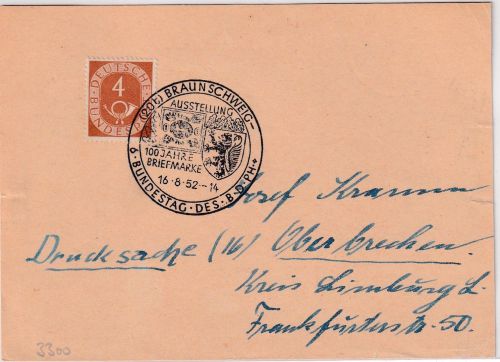 DEUTSCHE BUNDESPOST
4
(20b) BRAUNSCHWEIG
AUSSTELLUNG
100 JAHRE
BRIEFMARKE
16·8·52–14
6·BUNDESTAG·DES·B·D·PH·
Josef Kramm
Drucksache (16) Oberbrechen.
Kreis Limburg L.
Frankfurterstr. 50.
3300